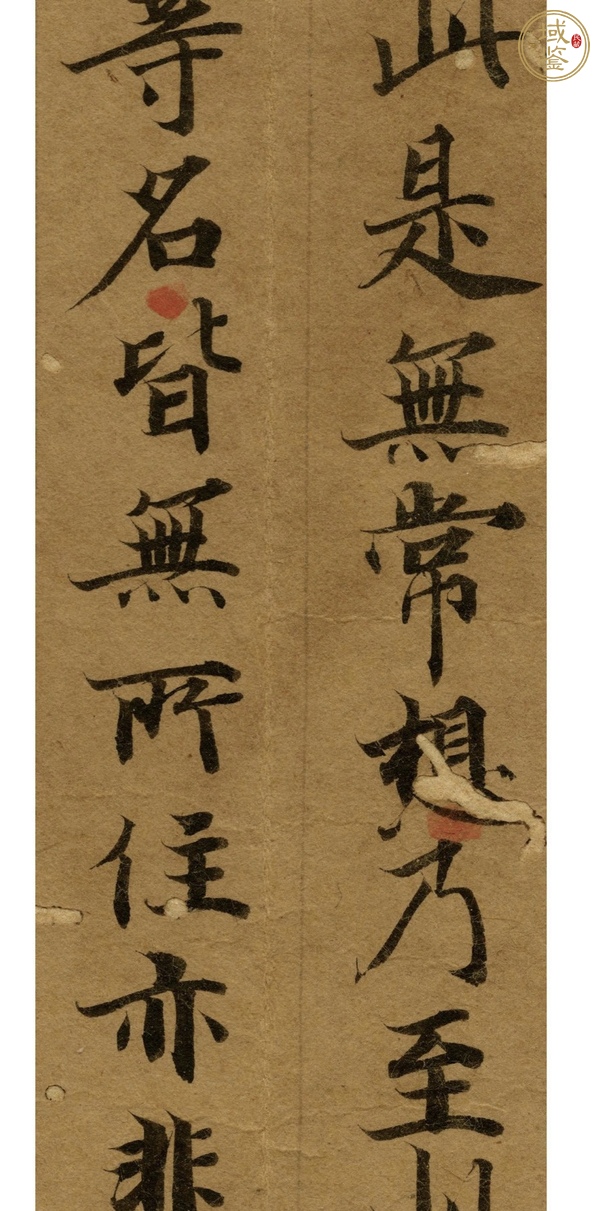 此是無常想乃至此
等名皆無所住亦非
域鉴